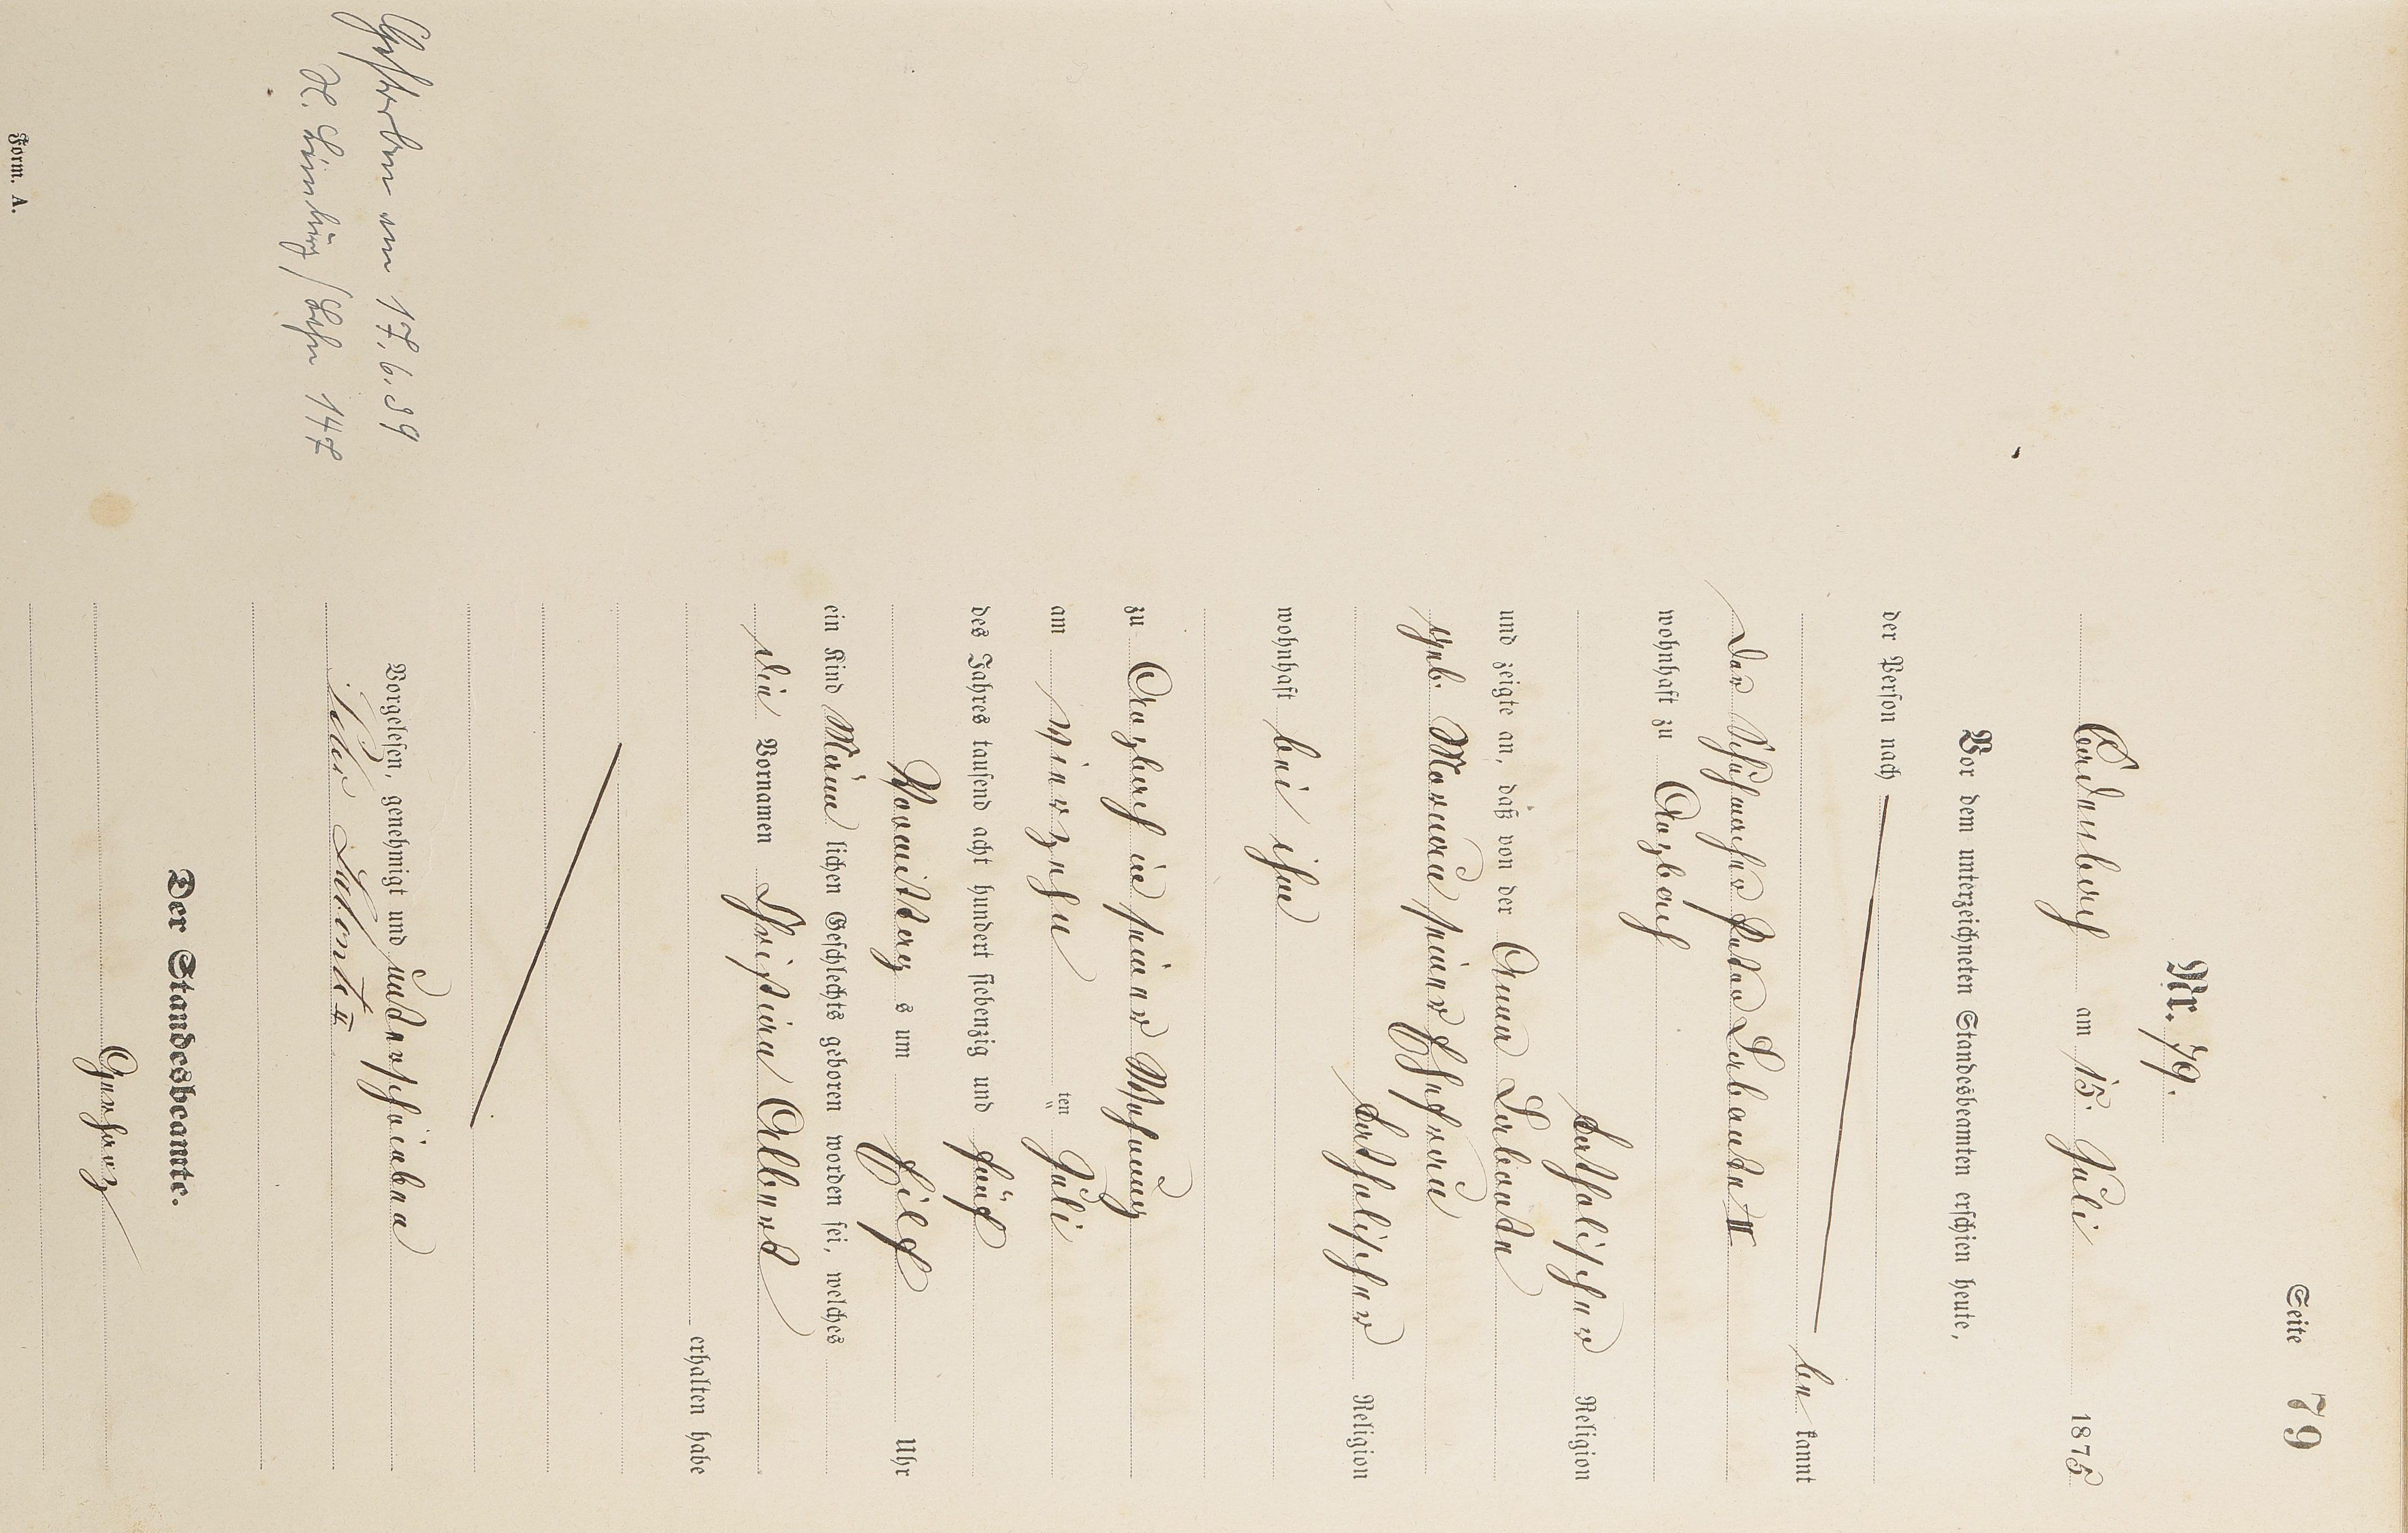 Seite 79
Nr. 79.
Cadenbach am 15. Juli 1875
Vor dem unterzeichneten Standesbeamten erschien heute,
der Person nach
be kannt
der Schuhmacher Peter Labonte II
wohnhaft zu Arzbach
katholischer Religion
und zeigte an, daß von der Anna Labonte
geb. Normann seiner Ehefrau
katholischer Religion
wohnhaft bei ihm
zu Arzbach in seiner Wohnung
am vierzehn ten Juli
des Jahres tausend acht hundert siebenzig und fünf
Vormittag s um Eilf Uhr
ein Kind Männ lichen Geschlechts geboren worden sei, welches
die Vornamen Christian Albert
erhalten habe
Vorgelesen, genehmigt und unterschrieben
Peter Labonte II
Der Standesbeamte.
Gerharz
Gestorben am 17.6.39
St. Limburg/Lahn 147
Form. A.